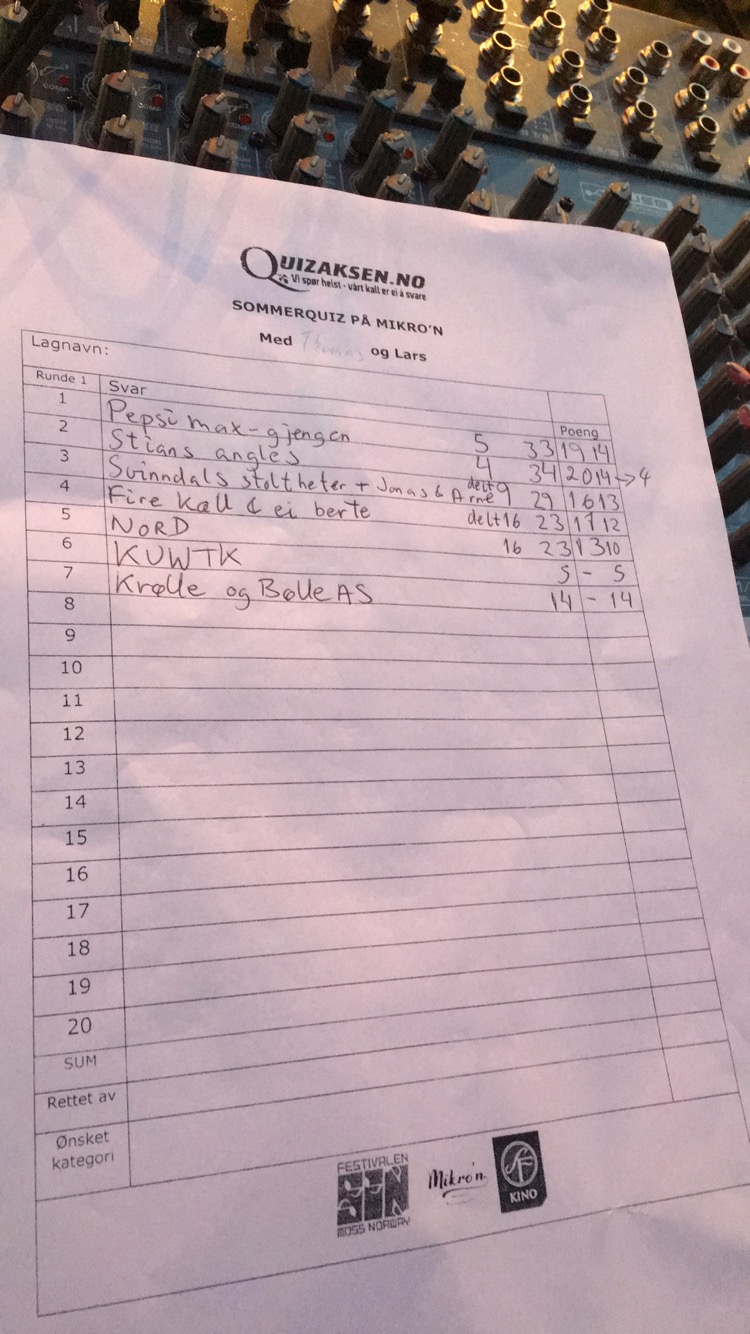 QUIZAKSEN.NO
Vi spør helst - vårt kall er ei å svare
SOMMERQUIZ PÅ MIKRO'N
Med Thomas og Lars
Lagnavn:
Runde 1 Svar Poeng
1 Pepsi max-gjengen 5 33 19 14
2 Stians angles 4 34 20 14 → 4
3 Svinndals stoltheter + Jonas & Arne delt 9 29 16 13
4 Fire kall & ei berte delt 16 23 11 12
5 NORD 16 23 13 10
6 KUWTK 5 - 5
7 Krølle og Bølle AS 14 - 14
8
9
10
11
12
13
14
15
16
17
18
19
20
SUM
Rettet av
Ønsket
kategori
FESTIVALEN
MOSS NORWAY
Mikro'n
SF
KINO